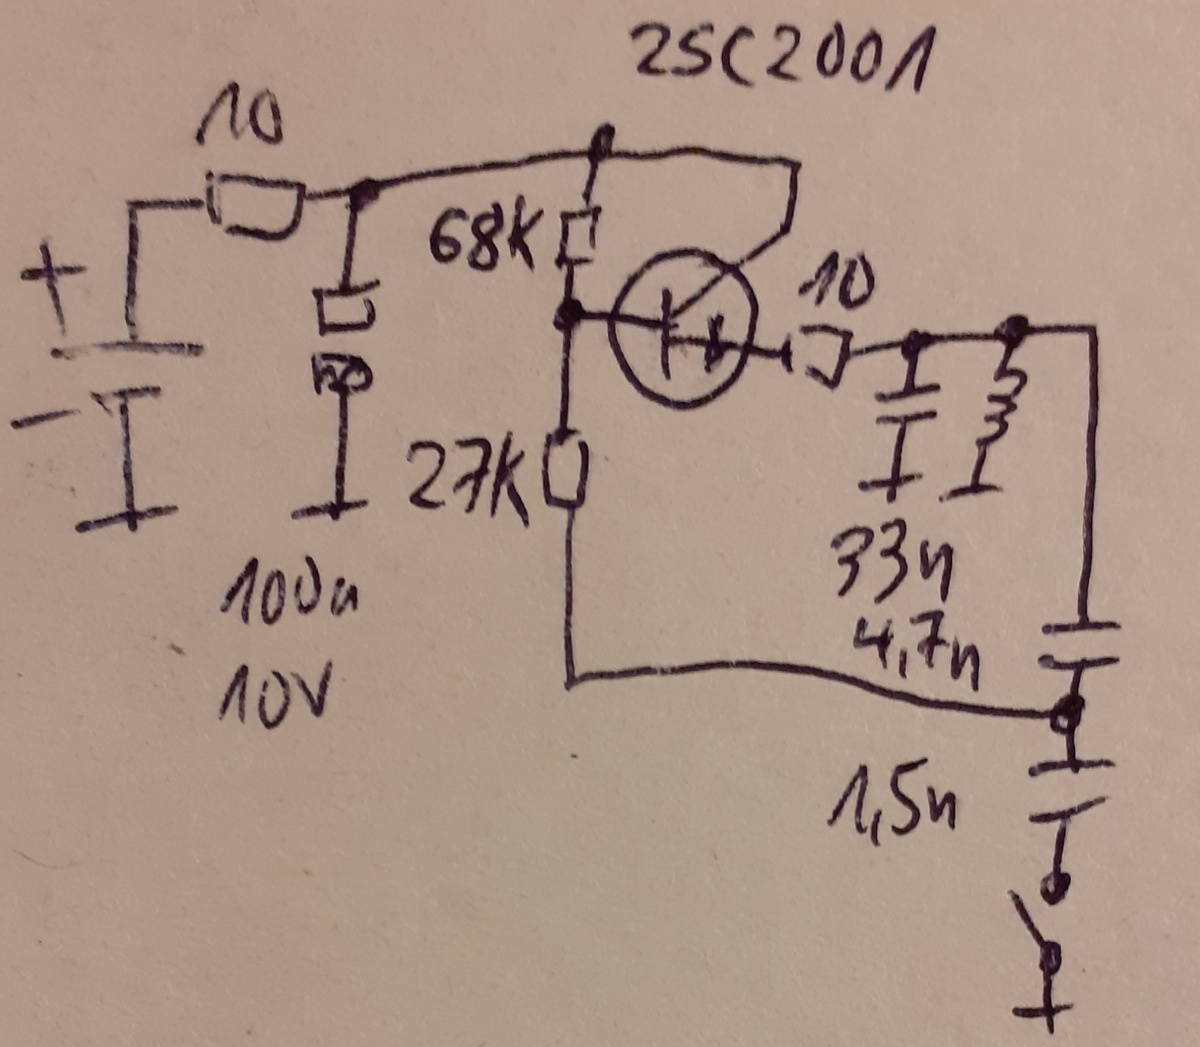 2SC2001
10
+
68K
10
-
27K
33n
100u
4,7n
10V
1,5n